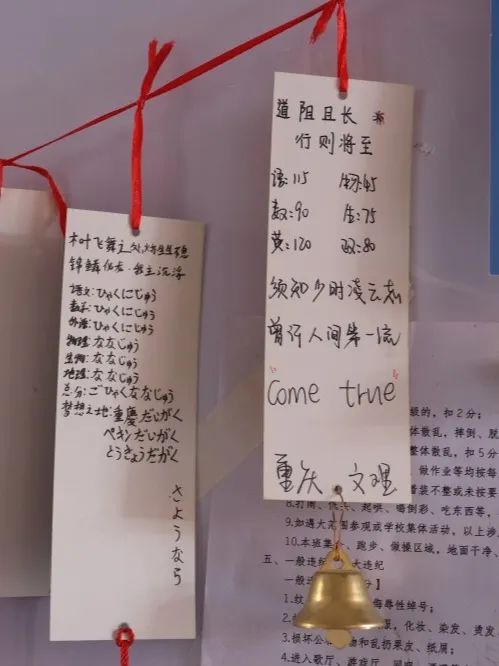 木叶飞舞之处,火亦生生不息
锦鳞化龙·我主沉浮
语文:ひゃくにじゅう
数学:ひゃくにじゅう
外语:ひゃくにじゅう
物理:ななじゅう
生物:ななじゅう
地理:ななじゅう
总分:ごひゃくななじゅう
梦想之地:重慶だいがく
ペキンだいがく
とうきょうだがく
さようなら
道阻且长
行则将至
语:115 物:45
数:90 生:75
英:120 政:80
须知少时凌云志
曾许人间第一流
"Come true"
重庆 文理
级的,扣2分;
体散乱,摔倒、脱
整体散乱,扣5分
、做作业等均按每
着装不整或未按要
9.如遇大范围参观或学校集体活动,以上涉
10.本班集 、跑步、做操区域,地面干净、
五、一般违纪 大违纪
一般违 分】
1.纹 侮辱性绰号;
2. ,化妆、染发、烫发
3.损坏公 物和乱扔果皮、纸屑;
4.进入歌厅、游戏厅